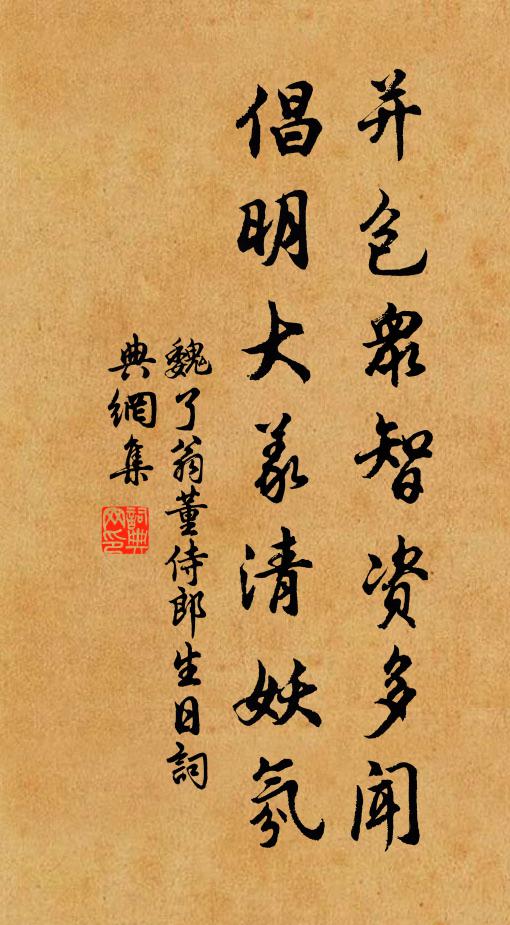 并包眾智資多聞
倡明大義清妖氛
魏了翁董侍郎生日詞
典網集
詞典網印